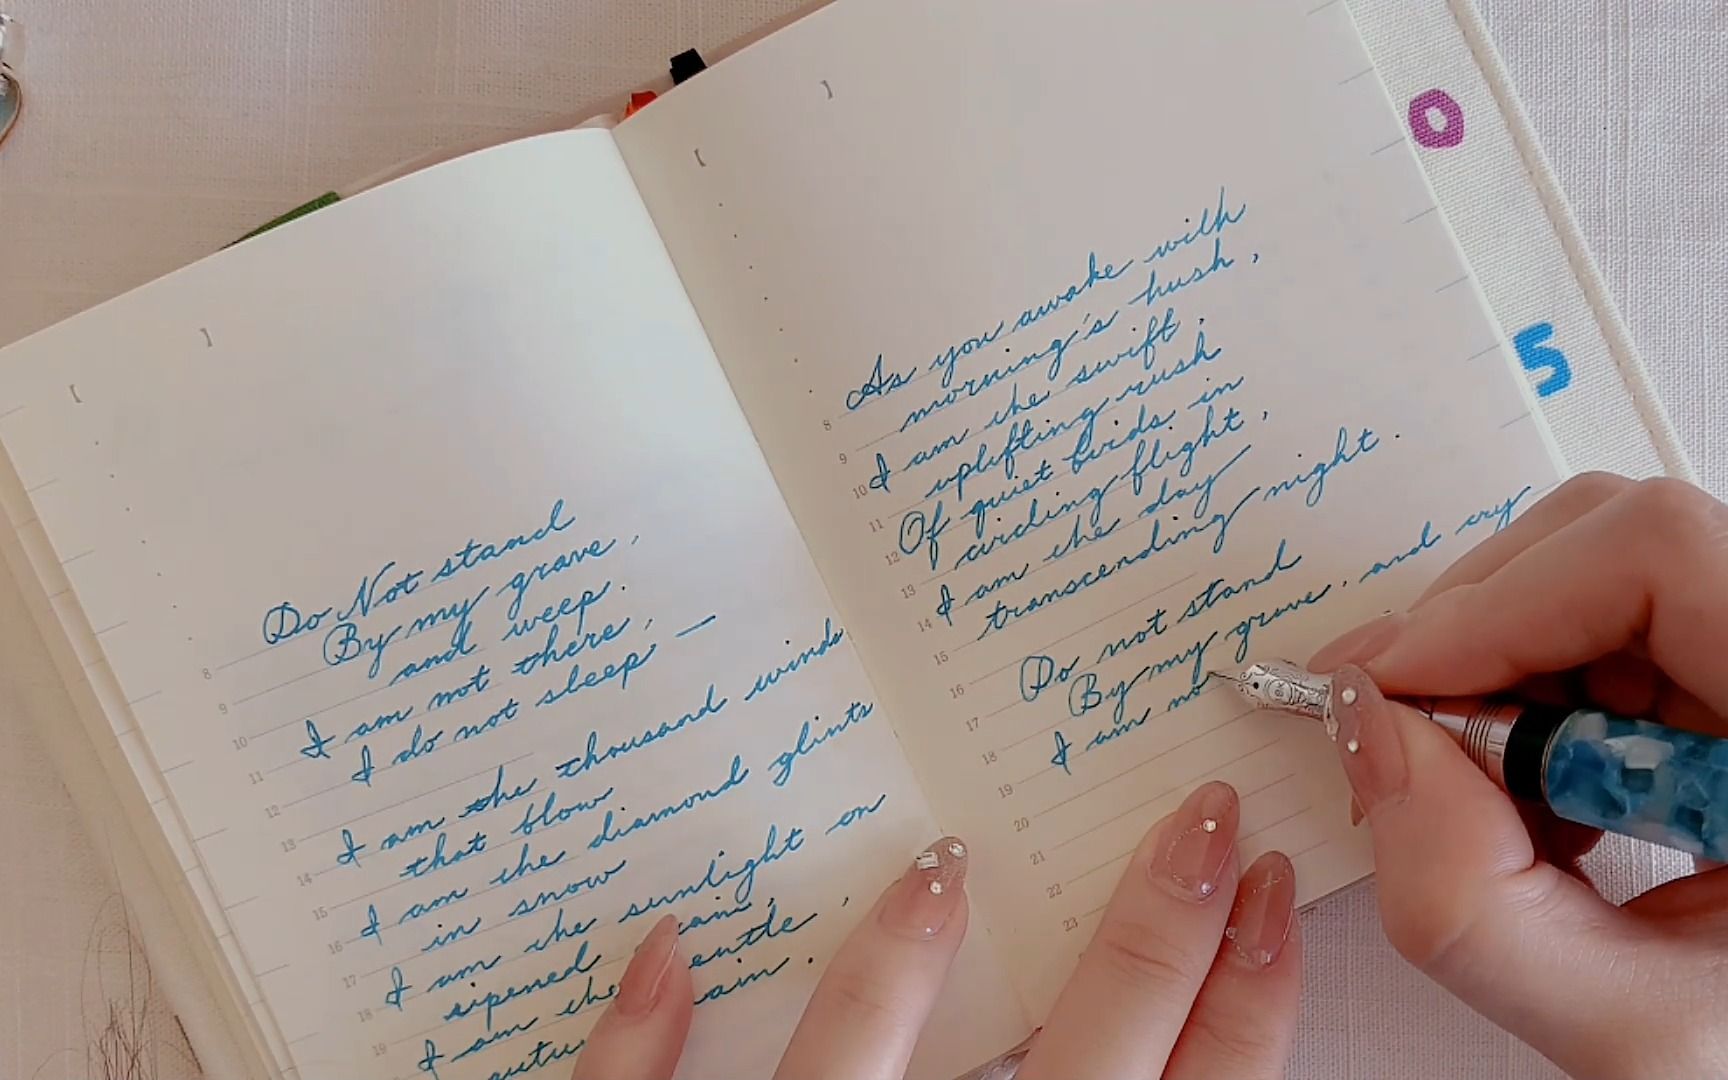 Do Not stand
By my grave,
and weep.
I am not there,
I do not sleep —
I am the thousand winds
that blow
I am the diamond glints
in snow
I am the sunlight on
ripened
I am the gentle,
autu ain.
As you awake with
morning's hush,
I am the swift,
uplifting rush
Of quiet birds in
circling flight,
I am the day
transcending night.
Do not stand
By my grave, and cry
I am no
0
5
8
9
10
11
12
13
14
15
16
17
18
19
8
9
10
11
12
13
14
15
16
17
18
19
20
21
22
23